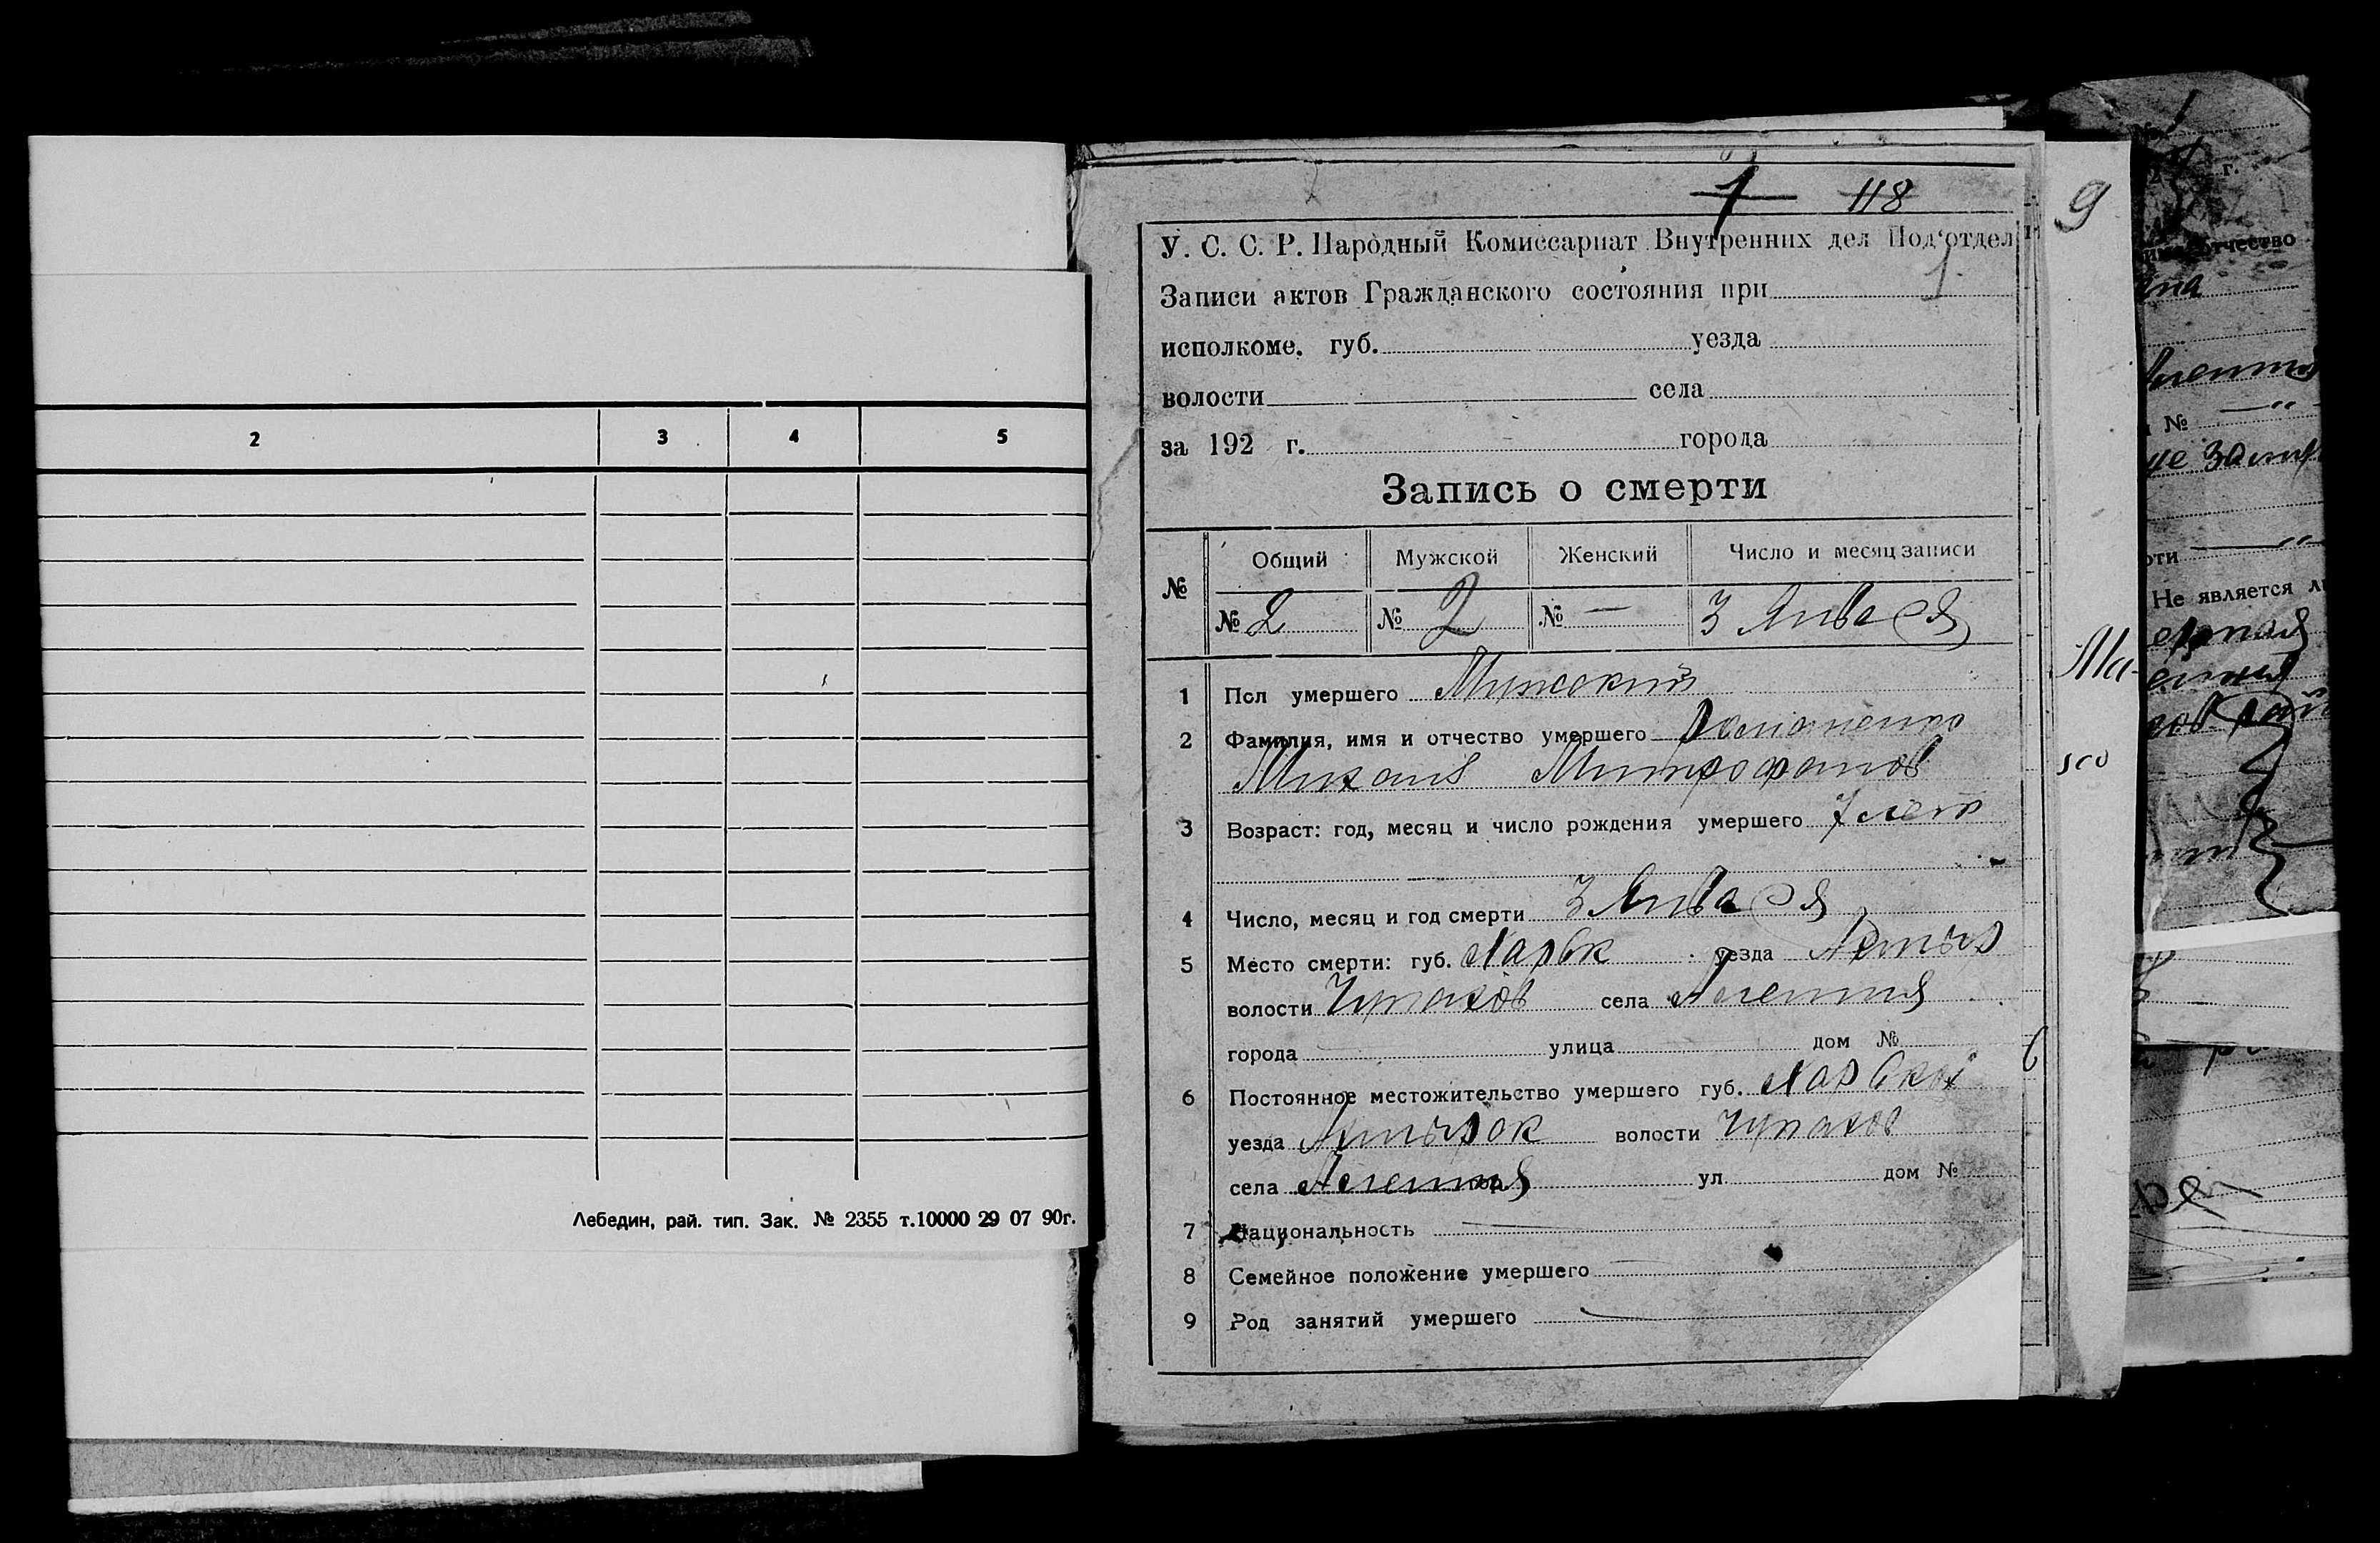 2 3 4 5
Лебедин, рай. тип. Зак. № 2355 т.10000 29 07 90г.
1 118
У. С. С. Р. Народный Комиссариат Внутренних дел Под'отдел
Записи актов Гражданского состояния при 1
исполкоме. губ. уезда
волости села
за 192 г. города
Запись о смерти
№ Общий Мужской Женский Число и месяц записи
№ 2 № 2 № — 3 Января
1 Пол умершего Мужской
2 Фамилия, имя и отчество умершего Романенко
Михаил Митрофанов
3 Возраст: год, месяц и число рождения умершего 7 лет
4 Число, месяц и год смерти 3 Января
5 Место смерти: губ. Харьк уезда Ахтыр
волости Чупахов села
города улица дом №
6 Постоянное местожительство умершего губ.
уезда Ахтырск волости Чупахов
села ул дом №
7 Национальность
8 Семейное положение умершего
9 Род занятий умершего
9
г.
отчество
№
Не является